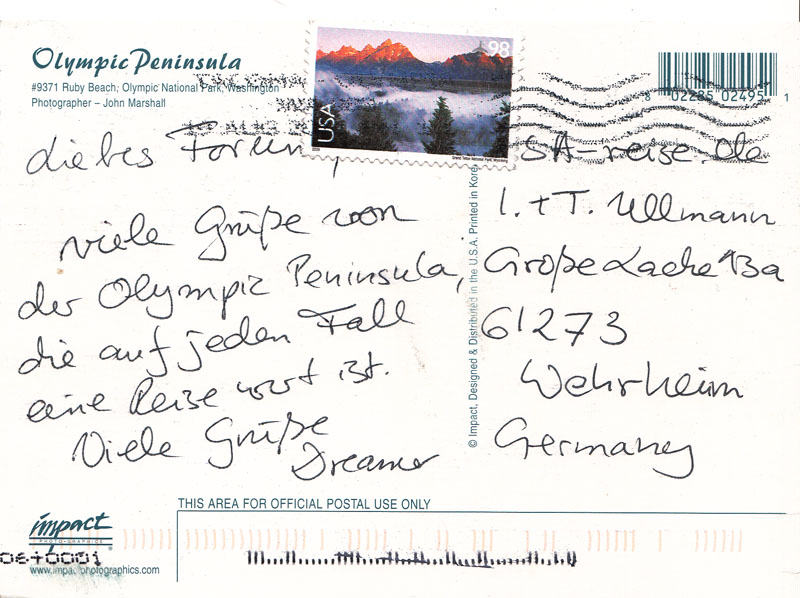 Olympic Peninsula
#9371 Ruby Beach, Olympic National Park, Washington
Photographer – John Marshall
USA
98
Grand Teton National Park, Wyoming
8 02285 02495 1
Liebes Forum,
viele Grüße von
der Olympic Peninsula,
die auf jeden Fall
eine Reise wert ist.
Viele Grüße
Dreamer
© Impact, Designed & Distributed in the U.S.A. Printed in Korea
SA-reise.de
I. + T. Ullmann
Große Lache 13a
61273
Wehrheim
Germany
THIS AREA FOR OFFICIAL POSTAL USE ONLY
impact
PHOTO-GRAPHICS
www.impactphotographics.com